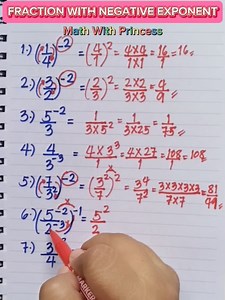 FRACTION WITH NEGATIVE EXPONENT
Math With Princess
1.) (1/4)^-2 = (4/1)^2 = 4x4/1x1 = 16/1 = 16
2.) (3/2)^-2 = (2/3)^2 = 2x2/3x3 = 4/9
3.) 5^-2/3 = 1/3x5^2 = 1/3x25 = 1/75
4.) 4/3^-3 = 4x3^3/1 = 4x27/1 = 108/1 = 108
= (3^2/7)^2 = 3^4/7^2 = 3x3x3x3/7x7 = 81/49
6.) (5^-2/2^-3)^-1 = 5^2/2
7.) 3/4